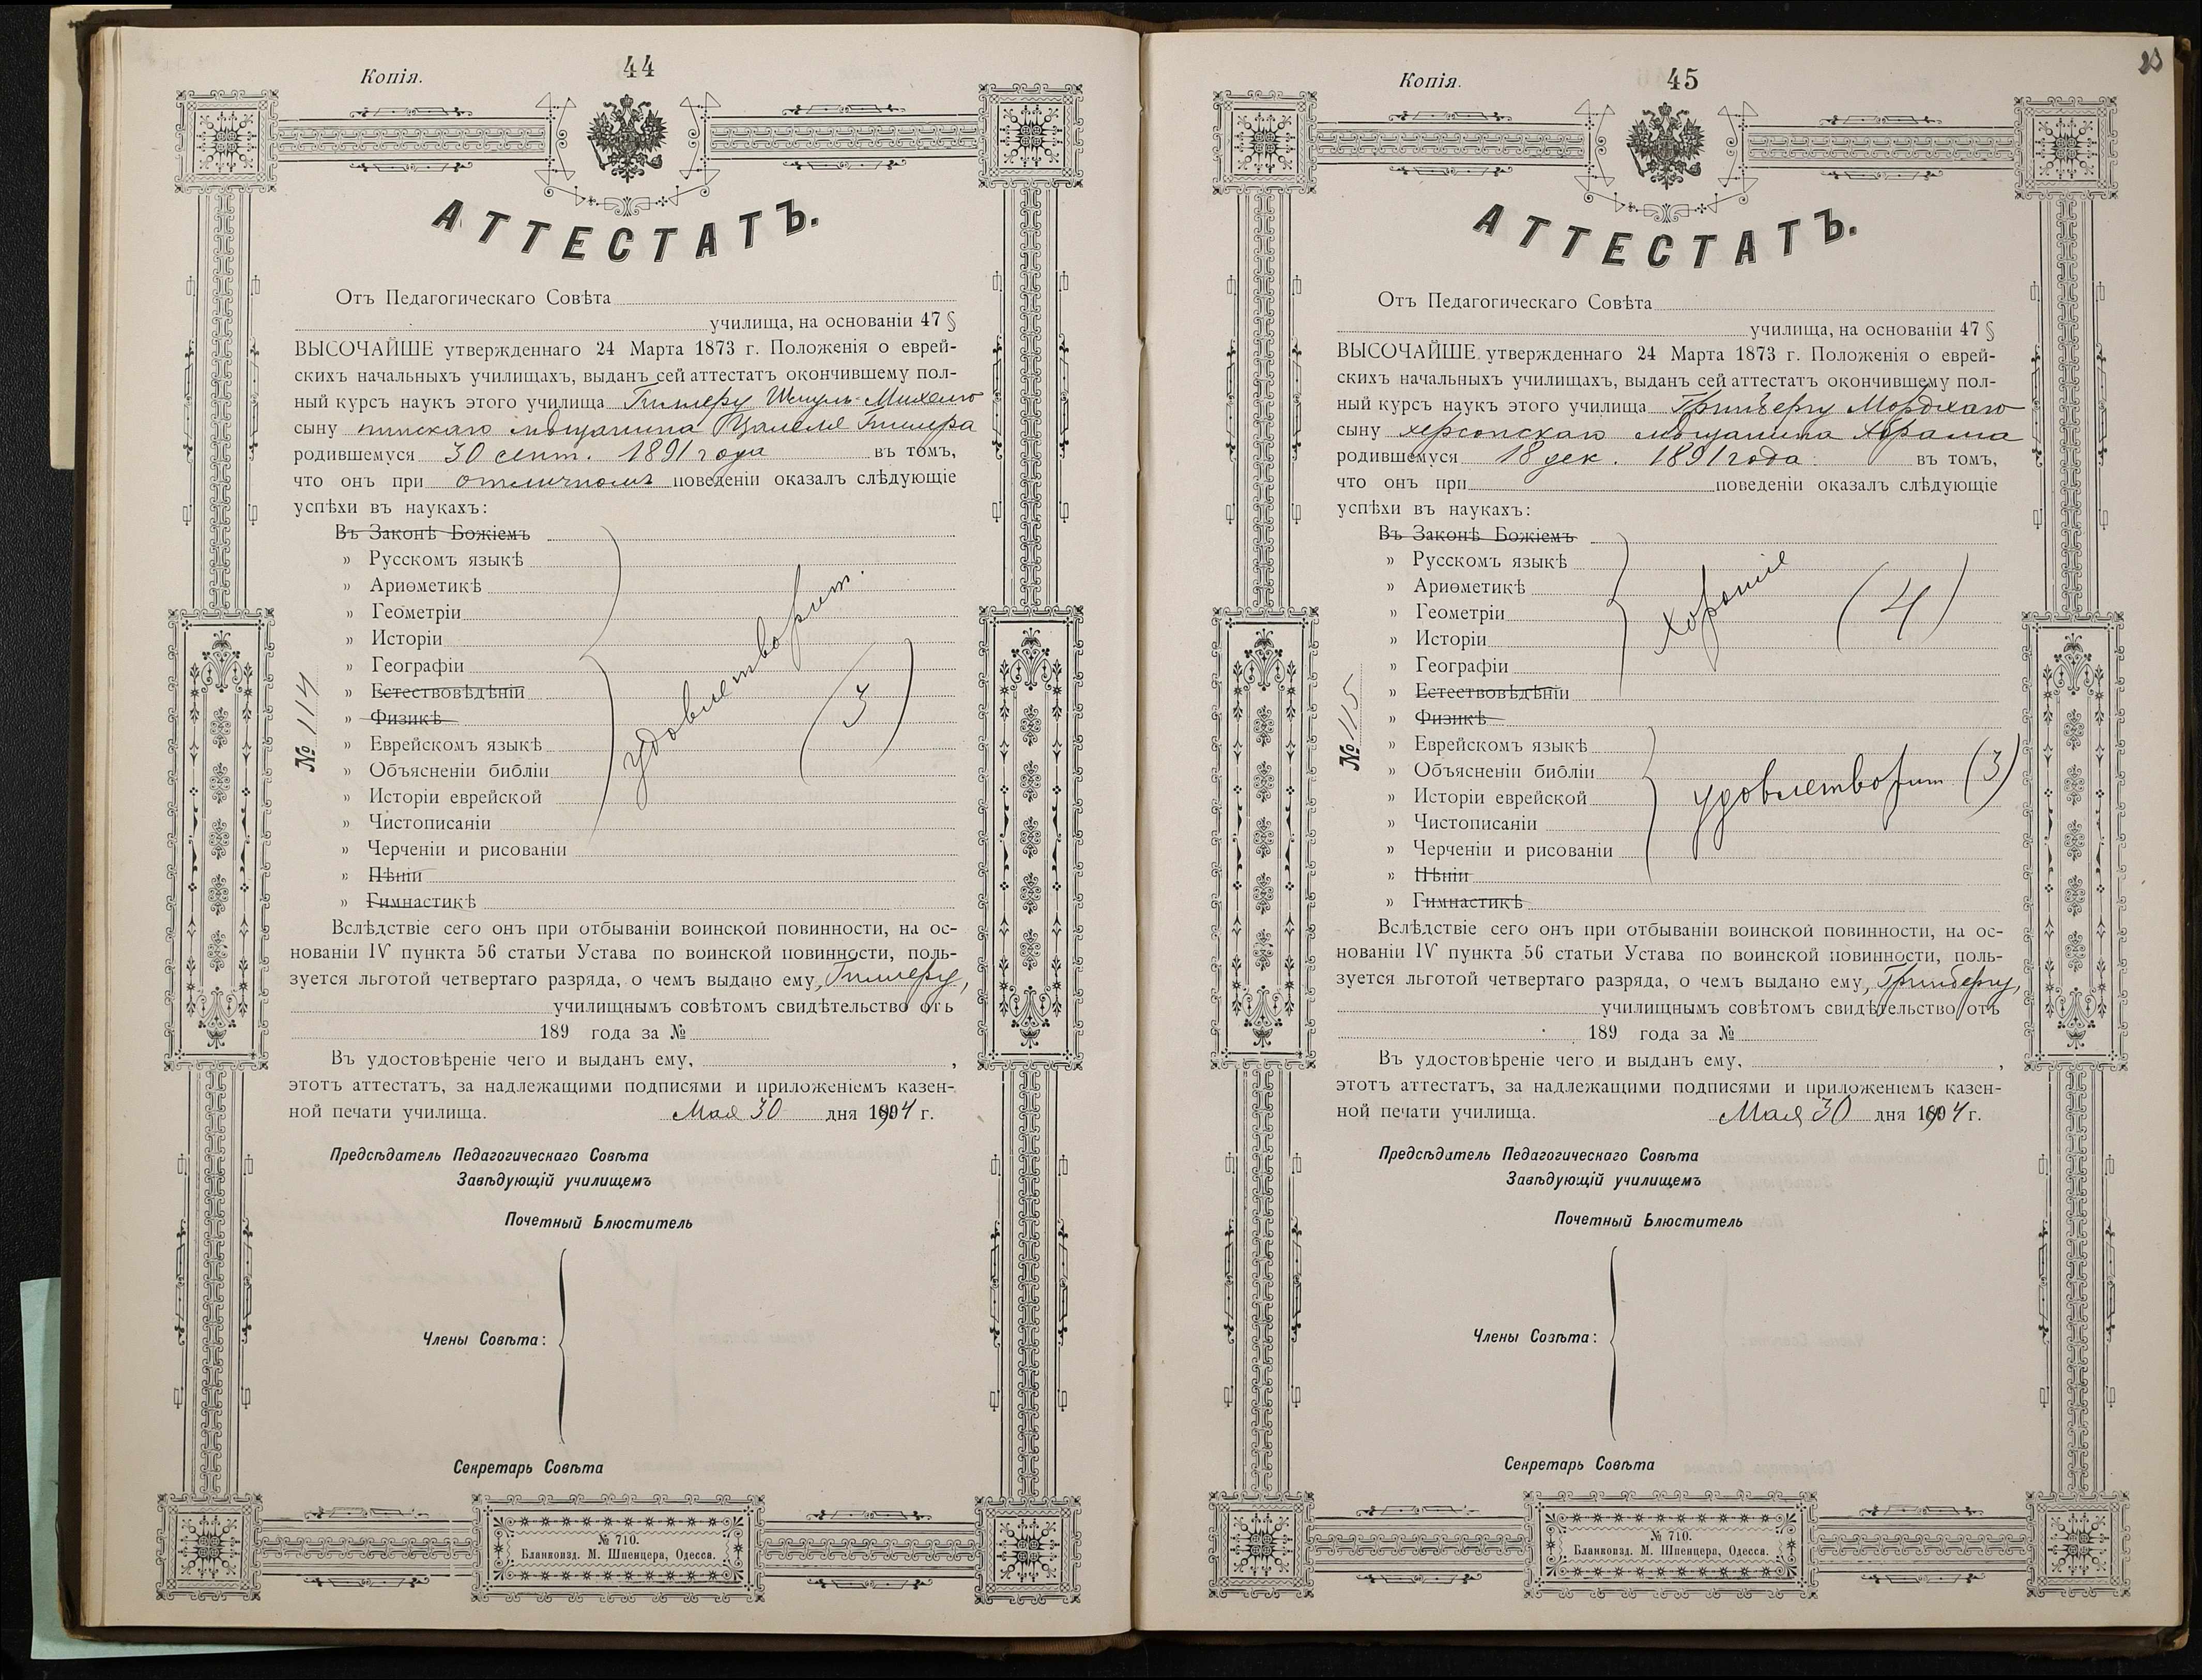 44
Копія.
АТТЕСТАТЪ.
Отъ Педагогическаго Совѣта
училища, на основаніи 47 §
ВЫСОЧАЙШЕ утвержденнаго 24 Марта 1873 г. Положенія о еврей-
скихъ начальныхъ училищахъ, выданъ сей аттестатъ окончившему пол-
ный курсъ наукъ этого училища Шмулъ-Михелю
сыну пинскаго мѣщанина
родившемуся 30 сент. 1891 года въ томъ,
что онъ при отличномъ поведеніи оказалъ слѣдующіе
успѣхи въ наукахъ:
Въ Законѣ Божіемъ
» Русскомъ языкѣ
» Ариѳметикѣ
» Геометріи
» Исторіи
» Географіи
» Естествовѣдѣніи
» Физикѣ
» Еврейскомъ языкѣ
» Объясненіи библіи
» Исторіи еврейской
» Чистописаніи
» Черченіи и рисованіи
» Пѣніи
» Гимнастикѣ
удовлетворит.
(3)
№ 114
Вслѣдствіе сего онъ при отбываніи воинской повинности, на ос-
нованіи IV пункта 56 статьи Устава по воинской повинности, поль-
зуется льготой четвертаго разряда, о чемъ выдано ему,
училищнымъ совѣтомъ свидѣтельство отъ
189 года за №
Въ удостовѣреніе чего и выданъ ему, ,
этотъ аттестатъ, за надлежащими подписями и приложеніемъ казен-
ной печати училища. Мая 30 дня 1904 г.
Предсѣдатель Педагогическаго Совѣта
Завѣдующій училищемъ
Почетный Блюститель
Члены Совѣта:
Секретарь Совѣта
№ 710.
Бланкоизд. М. Шпенцера, Одесса.
45
Копія.
АТТЕСТАТЪ.
Отъ Педагогическаго Совѣта
училища, на основаніи 47 §
ВЫСОЧАЙШЕ утвержденнаго 24 Марта 1873 г. Положенія о еврей-
скихъ начальныхъ училищахъ, выданъ сей аттестатъ окончившему пол-
ный курсъ наукъ этого училища Гринбергу Мордхаю
сыну херсонскаго мѣщанина Абрама
родившемуся 18 дек. 1891 года въ томъ,
что онъ при поведеніи оказалъ слѣдующіе
успѣхи въ наукахъ:
Въ Законѣ Божіемъ
» Русскомъ языкѣ
» Ариѳметикѣ
» Геометріи
» Исторіи
» Географіи
» Естествовѣдѣніи
» Физикѣ
хорошіе (4)
» Еврейскомъ языкѣ
» Объясненіи библіи
» Исторіи еврейской
» Чистописаніи
» Черченіи и рисованіи
» Пѣніи
» Гимнастикѣ
удовлетворит (3)
№ 115
Вслѣдствіе сего онъ при отбываніи воинской повинности, на ос-
нованіи IV пункта 56 статьи Устава по воинской повинности, поль-
зуется льготой четвертаго разряда, о чемъ выдано ему, Гринбергу,
училищнымъ совѣтомъ свидѣтельство отъ
189 года за №
Въ удостовѣреніе чего и выданъ ему, ,
этотъ аттестатъ, за надлежащими подписями и приложеніемъ казен-
ной печати училища. Мая 30 дня 1904 г.
Предсѣдатель Педагогическаго Совѣта
Завѣдующій училищемъ
Почетный Блюститель
Члены Совѣта:
Секретарь Совѣта
№ 710.
Бланкоизд. М. Шпенцера, Одесса.